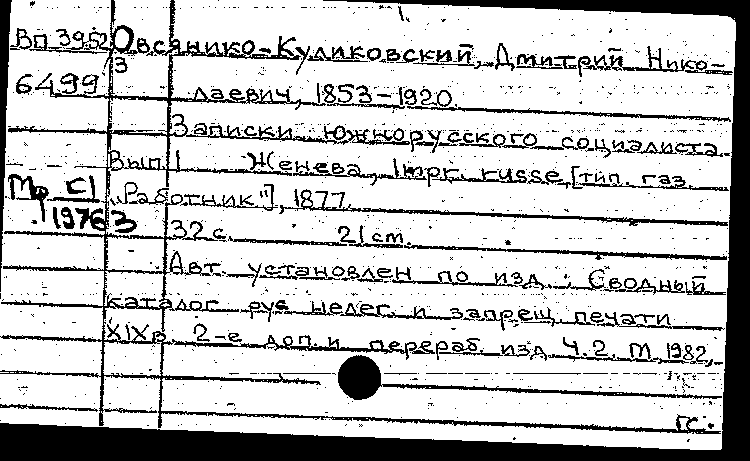 ВП 3952/3 Овсянико-Куликовский, Дмитрий Нико-
6499 лаевич, 1853-1920.
Записки южнорусского социалиста.
Вып. 1 Женева, Impr. russe, [тип. газ.
"Работник"], 1877.
19763
32 с. 21 cm.
Авт. установлен по изд.: Сводный
каталог рус. нелег. и запрещ. печати
XIX в. 2-е доп. и перераб. изд. Ч. 2. М., 1982,
ГС.